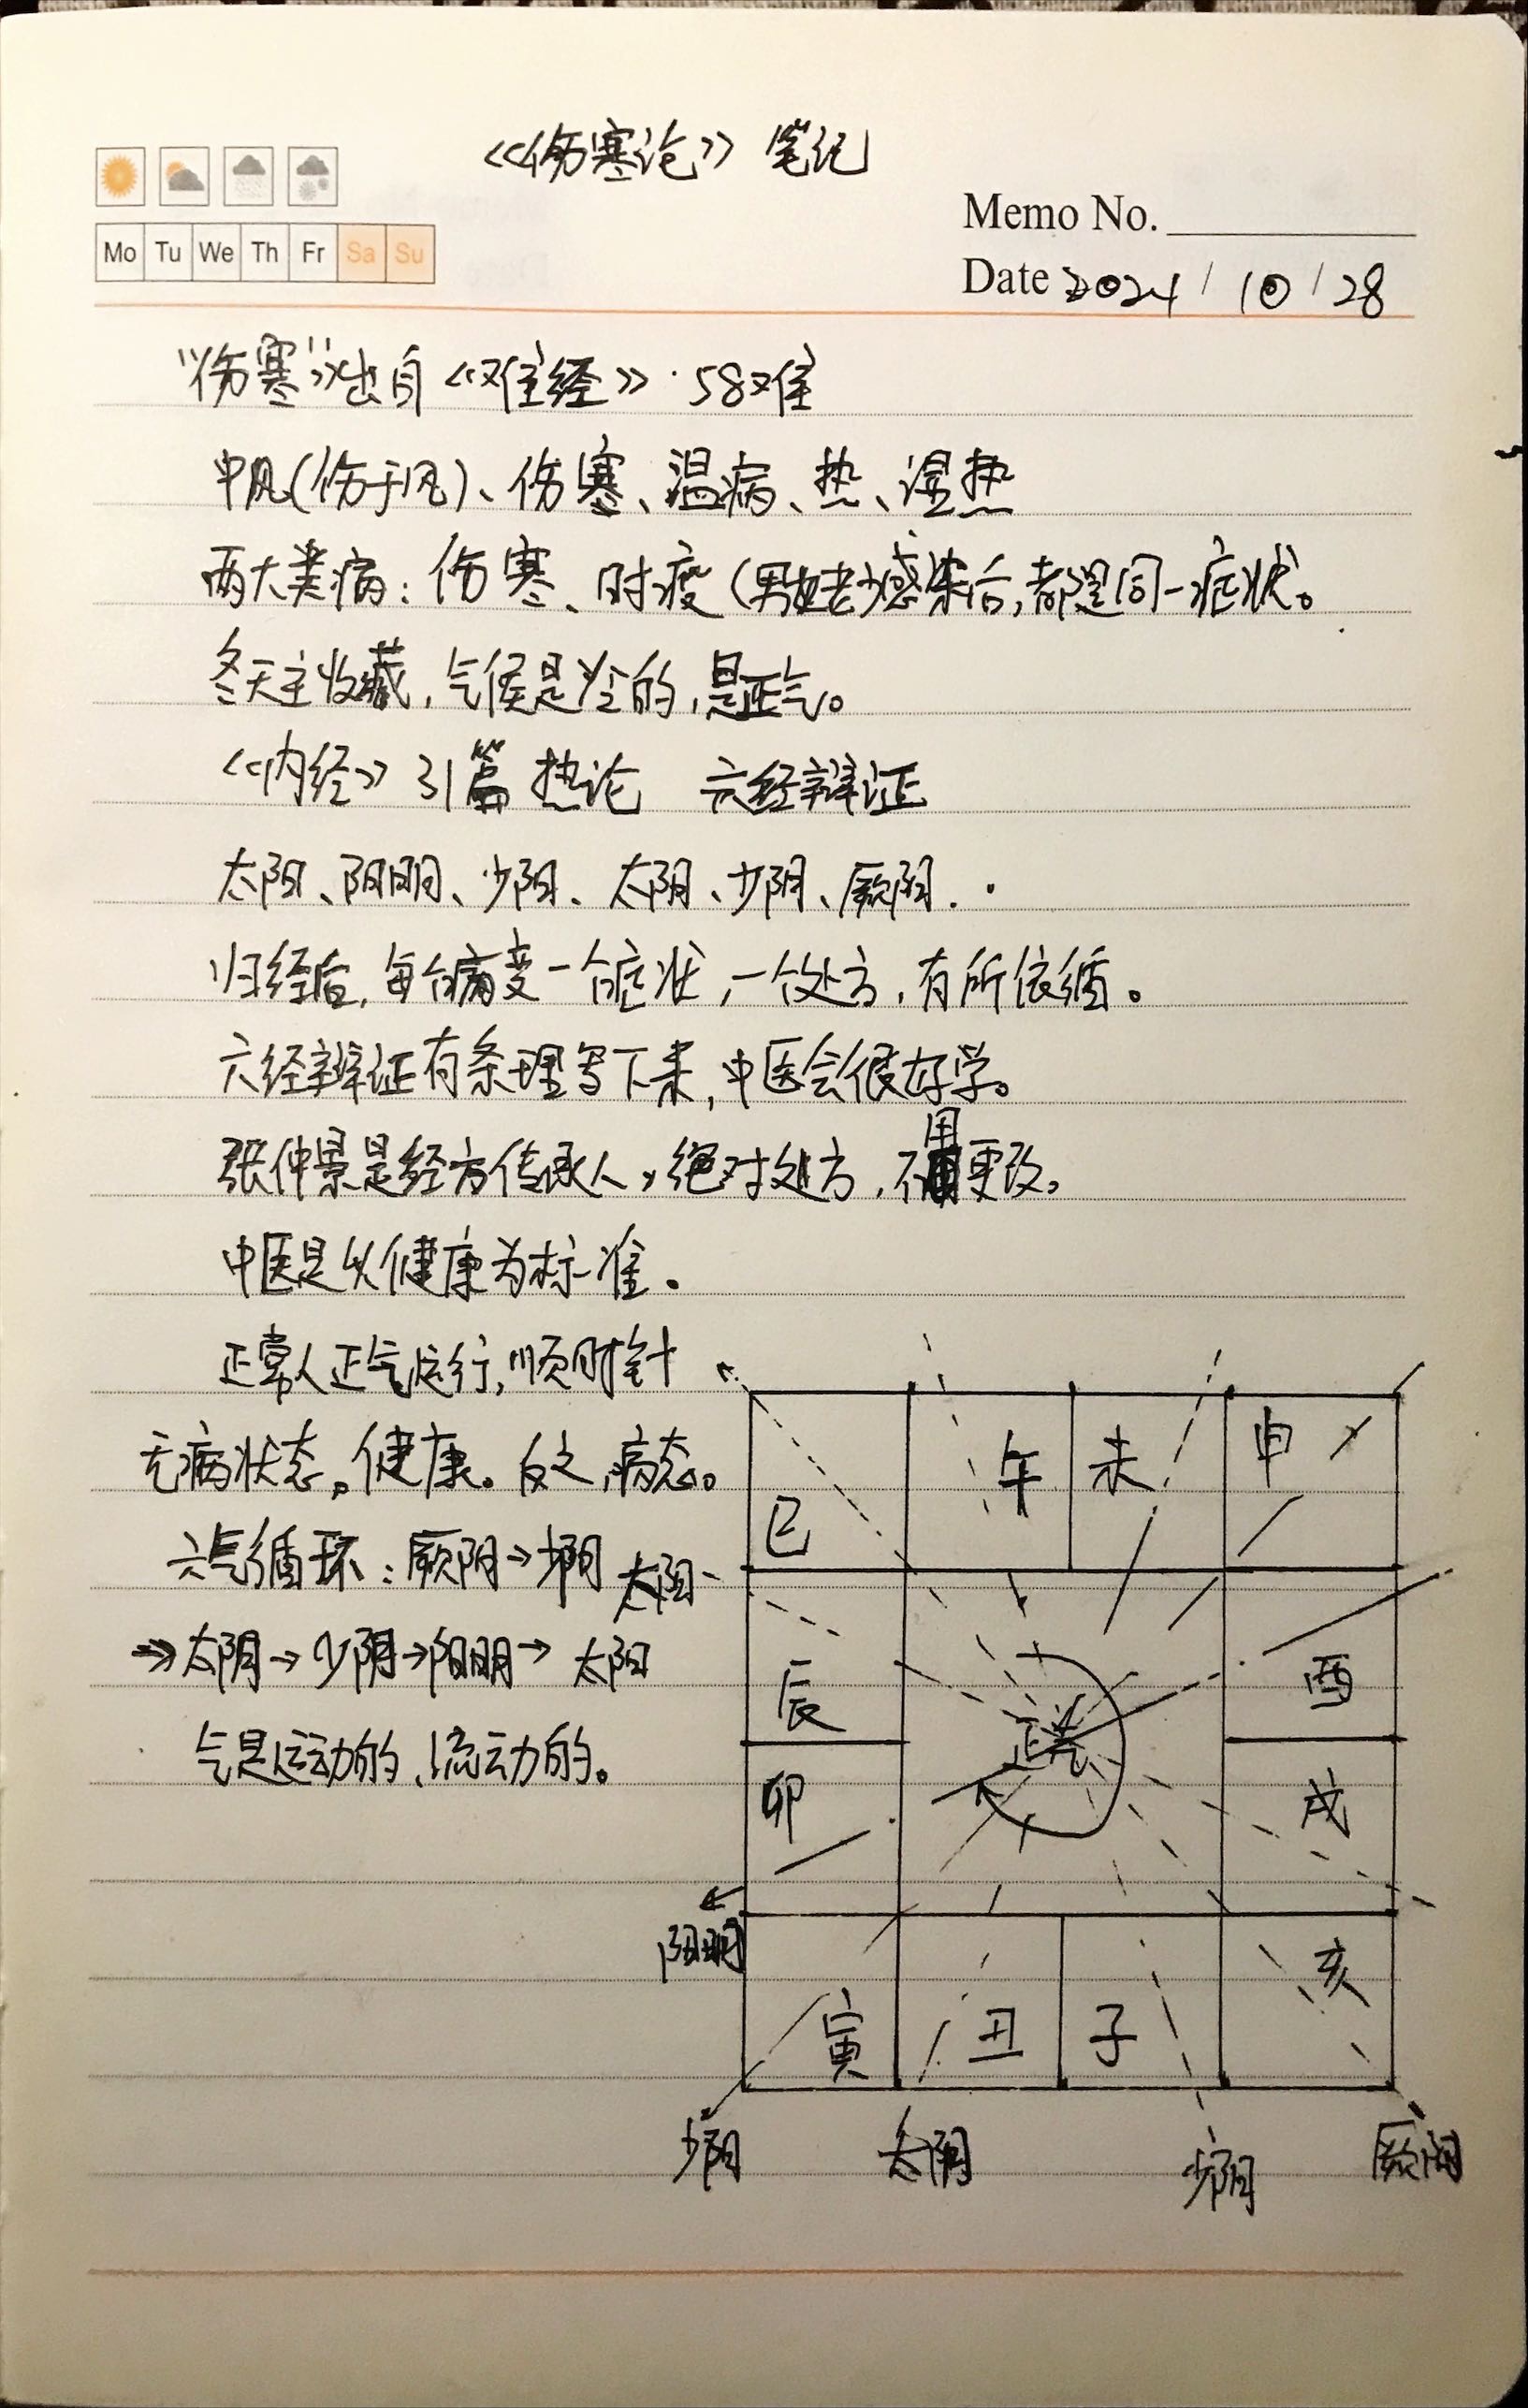 《伤寒论》笔记
Mo Tu We Th Fr Sa Su
Memo No.
Date 2024 / 10 / 28
“伤寒”出自《难经》·58难
中风(伤于风)、伤寒、温病、热、湿热
两大类病：伤寒、时疫(男女老少感染后,都是同一症状。
冬天主收藏,气候是冷的,是正气。
《内经》31篇 热论 六经辩证
太阳、阳明、少阳、太阴、少阴、厥阴.
归经后,每个病变一个症状,一个处方,有所依循。
六经辩证有条理写下来,中医会很好学。
张仲景是经方传承人,绝对处方,不用更改。
中医是以健康为标准.
正常人正气运行,顺时针
无病状态。健康。反之,病态。
六气循环：厥阴→少阳 太阳
→太阴→少阴→阳明→ 太阳
气是运动的、流动的。
巳 午 未 申
辰 酉
正气
卯 戌
阳明
寅 丑 子 亥
少阳 太阴 厥阴